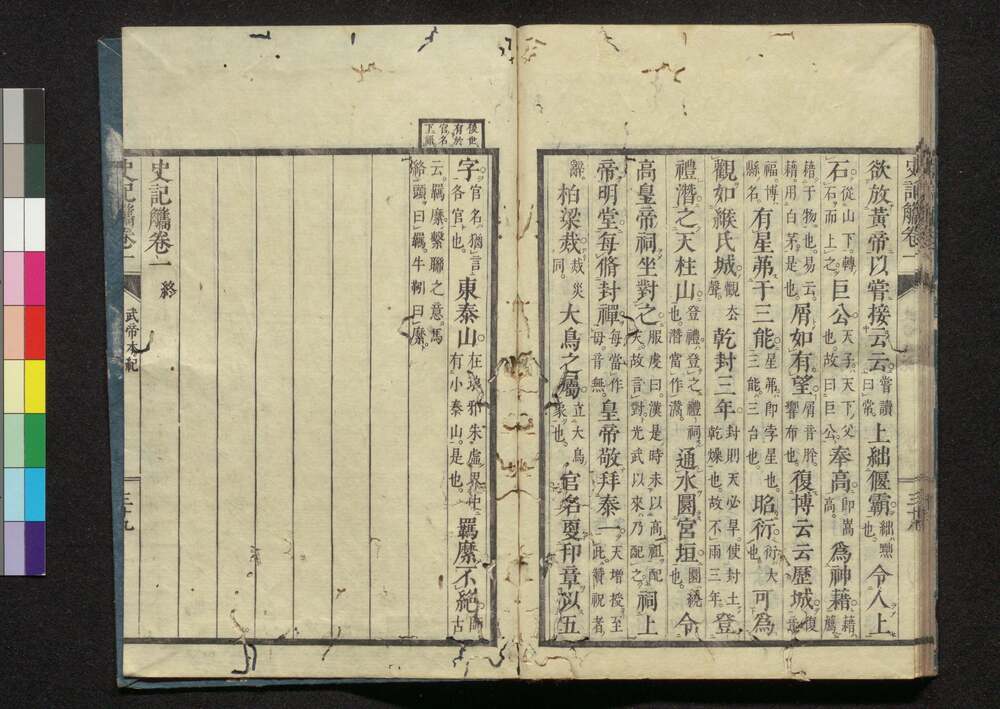 欲放黃帝以嘗接云云嘗讀曰常上絀偃霸絀黜也令人上
石從山下轉石而上之巨公天子天下父也故曰巨公奉高即嵩高爲神藉藉薦
藉于物也易云藉用白茅是也屑如有望屑音胗響布也復博云云歷城復
福博縣名有星茀于三能星茀即孛星也三能三台也昭衍衍大也可爲
觀如緱氏城觀去聲乾封三年封則天必旱使封土乾燥也故不雨三年登
禮潛之天柱山登禮登之禮祠也潛當作灊通水圜宮垣圜繞也令
高皇帝祠坐對之服虔曰漢是時未以高祖配天故言對光武以來乃配之祠上
帝明堂每脩封禪每當作毋音無皇帝敬拜泰一天增授至此贊祝者
辭柏梁烖烖災同大鳥之屬立大鳥象也官名更印章以五
字官名猶言各官也東泰山在琅邪朱虛界中有小泰山是也羈縻不絕師古
云羈縻繫聯之意馬絡頭曰羈牛靷曰縻
後世有於官名下頭
史記觿卷一終
史記觿卷一
武帝本紀
三十九
史記觿卷一